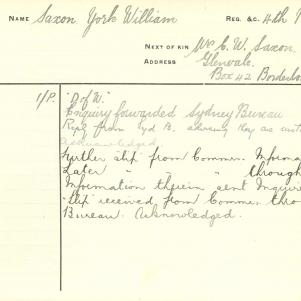 NAME Saxon York William REG. &C. 4th
NEXT OF KIN Mrs C. W. Saxon.
ADDRESS Glenvale.
Box 42
1/P. "D of W."
Enquiry forwarded Sydney Bureau
Rep from Syd B. advising Kay as
Acknowledged
Further slip from Commr.
Later " " " " through
Information therein sent
slip received from Commr.
Bureau. Acknowledged.